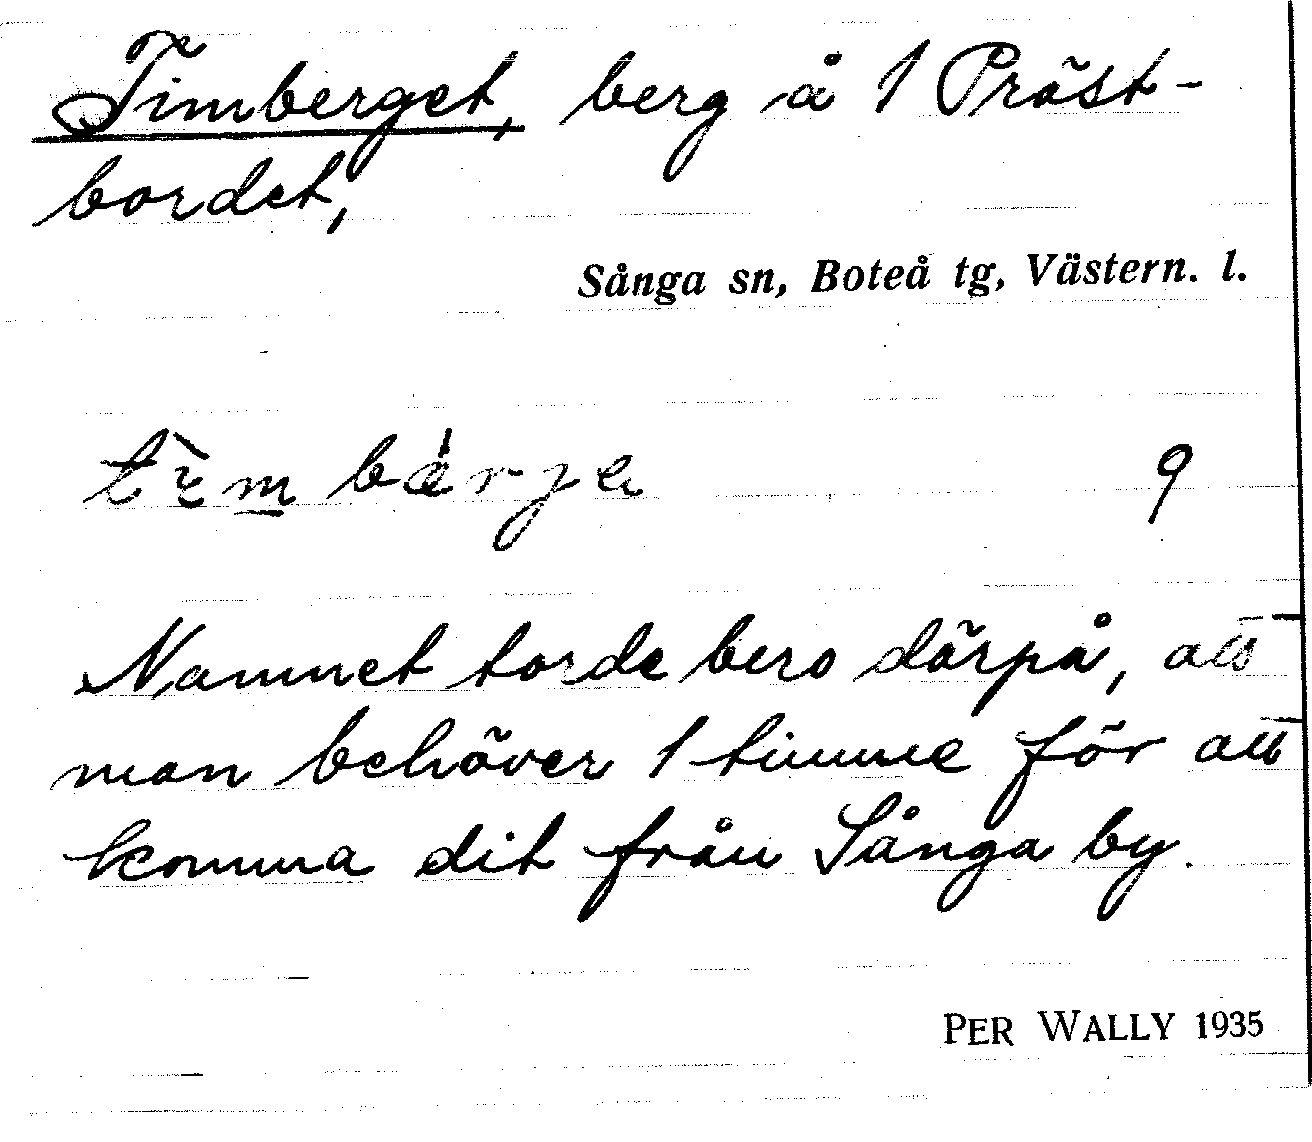 Timberget, berg å 1 Präst-
bordet,
Sånga sn, Boteå tg, Västern. l.
9
Namnet torde bero därpå, att
man behöver 1 timme för att
komma dit från Sånga by.
PER WALLY 1935